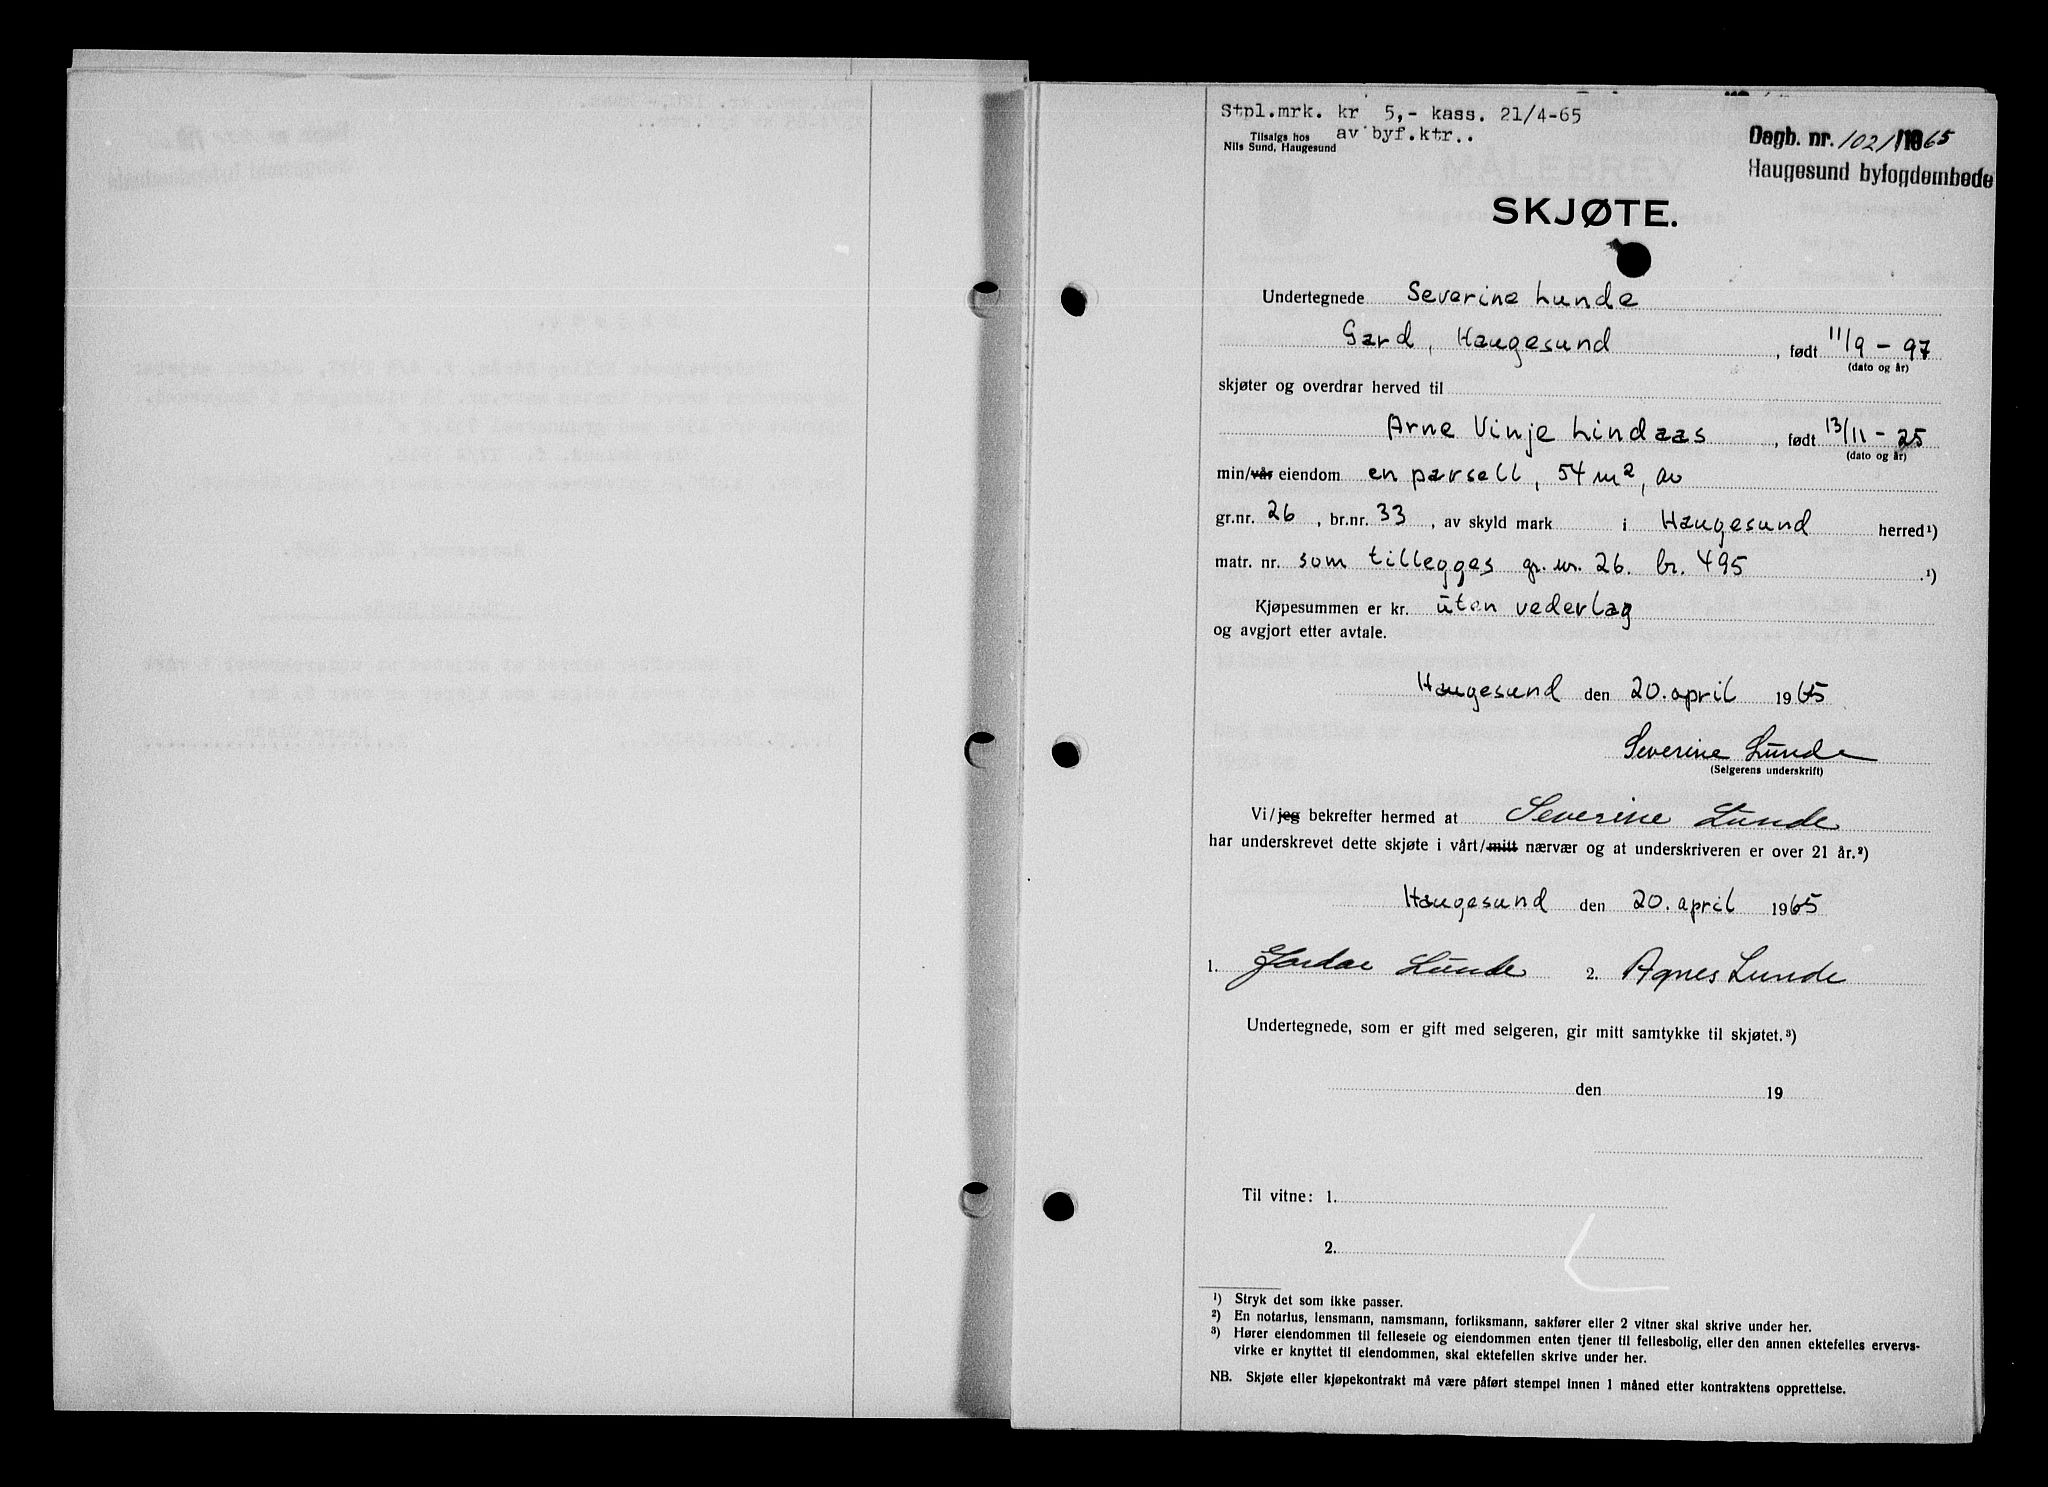 Stpl.mrk. kr 5,- kass. 21/4-65
av byf.ktr..
Tilsalgs hos
Nils Sund, Haugesund
Dagb. nr. 1021/1965
Haugesund byfogdembede
SKJØTE.
Undertegnede Severine Lunde
Gard, Haugesund, født 11/9-97
(dato og år)
skjøter og overdrar herved til
Arne Vinje Lindaas, født 13/11-25
(dato og år)
min/vår eiendom en parsell, 54 m², av
gr.nr. 26, br.nr. 33, av skyld mark i Haugesund herred¹)
matr. nr. som tillegges gr. nr. 26. br. 495 .¹)
Kjøpesummen er kr. uten vederlag
og avgjort etter avtale.
Haugesund den 20. april 1965
Severine Lunde
(Selgerens underskrift)
Vi/jeg bekrefter hermed at Severine Lunde
har underskrevet dette skjøte i vårt/mitt nærvær og at underskriveren er over 21 år.²)
Haugesund den 20. april 1965
1. Lunde 2. Agnes Lunde
Undertegnede, som er gift med selgeren, gir mitt samtykke til skjøtet.³)
den 19
Til vitne: 1.
2.
¹) Stryk det som ikke passer.
²) En notarius, lensmann, namsmann, forliksmann, sakfører eller 2 vitner skal skrive under her.
³) Hører eiendommen til felleseie og eiendommen enten tjener til fellesbolig, eller den annen ektefelles ervervs-
virke er knyttet til eiendommen, skal ektefellen skrive under her.
NB. Skjøte eller kjøpekontrakt må være påført stempel innen 1 måned etter kontraktens opprettelse.